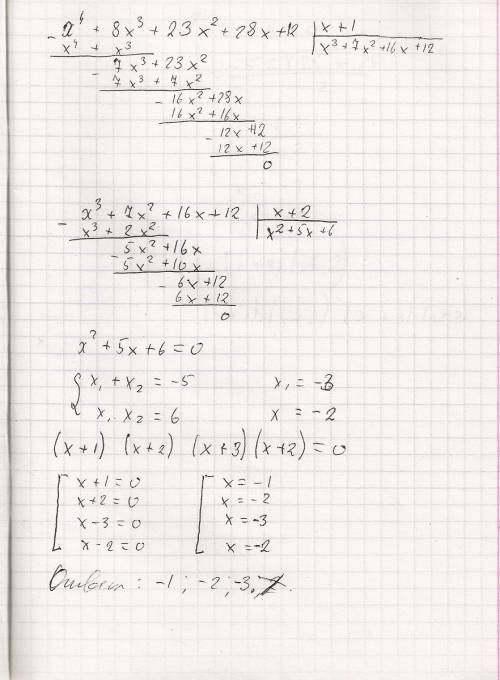 - x⁴ + 8x³ + 23x² + 28x + 12 | x + 1
x⁴ + x³ | x³ + 7x² + 16x + 12
- 7x³ + 23x²
7x³ + 7x²
- 16x² + 28x
16x² + 16x
- 12x + 12
12x + 12
0
- x³ + 7x² + 16x + 12 | x + 2
x³ + 2x² | x² + 5x + 6
- 5x² + 16x
5x² + 10x
- 6x + 12
6x + 12
0
x² + 5x + 6 = 0
{ x₁ + x₂ = -5 x₁ = -3
x₁ x₂ = 6 x = -2
(x+1) (x+2) (x+3) (x+2) = 0
[ x + 1 = 0 [ x = -1
x + 2 = 0 x = -2
x - 3 = 0 x = -3
x - 2 = 0 x = -2
Ответ : -1 ; -2 ; -3.